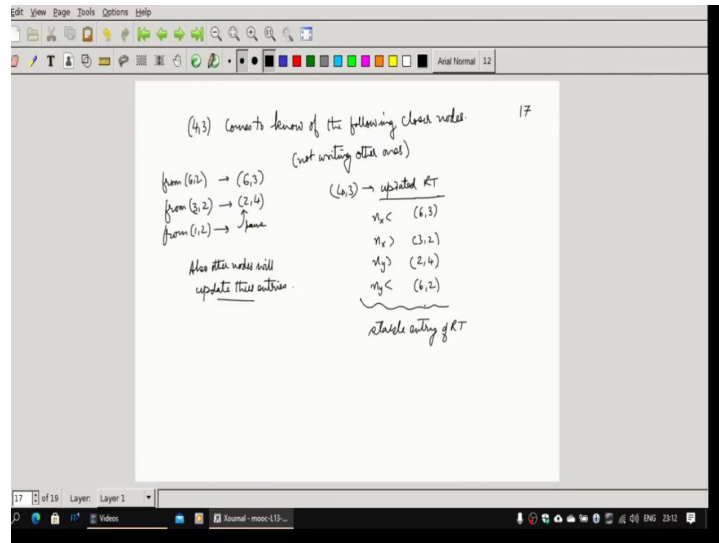 Edit View Page Tools Options Help
Arial Normal 12
17
(4,3) Comes to know of the following closer nodes.
(not writing other ones)
from (6,2) → (6,3)
from (3,2) → (2,4)
from (1,2) → 
Also other nodes will
update their entries.
(4,3) → updated RT
nx< (6,3)
nx> (3,2)
ny> (2,4)
ny< (6,2)
stable entry of RT
17 of 19 Layer: Layer 1
Videos
Xournal - mooc-L13-...
ENG 23:12